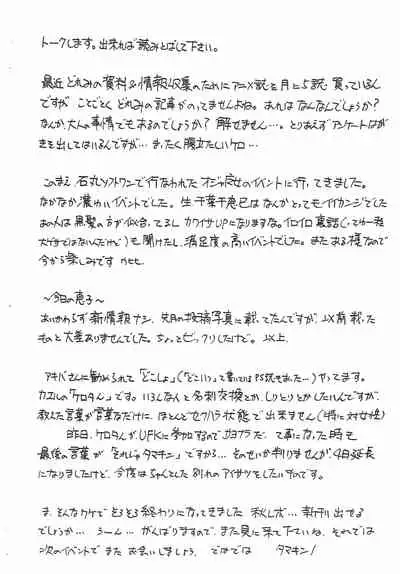 トークします。出来れば読みとばして下さい。
最近どれみの資料&情報収集のためにアニメ誌を月に5誌 買っているん
ですが ことごとく どれみの記事がのってませんよね。あれはなんなんでしょうか?
なんか、大人の事情でもあるのでしょうか? 解せません…。とりあえずアンケートはが
きを出してはいるんですが… まったく腹立たしいケロ…
このまえ 石丸ソフトワンで行なわれた オジャ魔女のイベントに行ってきました。
なかなか濃ゆいイベントでした。生 千葉千恵巳はなんかとってもイイカンジでした
あの人は黒髪の方が似合ってるし カワイサUPになりますな。イロイロ裏話(でも一発
大げさではないんだけど)も聞けたし、満足度の高いイベントでした。またある様なので
今から楽しみです
~今日の恵子~
あいかわらず 新情報ナシ、先月の投稿写真に載ってたんですが、以前載った
ものと大差ありませんでした。ちょっとビックリしたけど。以上
アキバさんに勧められて「どこしょ」(「どこいつ」って書いては PS読を  …)やってます。
カエルの「ケロタン」です。いろんな人と名刺交換とか、しりとりとかしたいんですが、
教えた言葉が言葉なだけに、ほとんどセクハラ状態で出来ません(特に対女性)
昨日、ケロタンが、UFKに参加するので サヨナラだってな事になった時も
最後の言葉が「それじゃタマキン」ですから… そのせいか判りませんが、4日延長
になりましたけど、今度はちゃんとした 別れのアイサツをしたいものです。
ま、そんなワケで そろそろ終わりになってきました 秋レボ… 新刊 出せる
でしょうか… うーん… がんばりますので、また見に来て下さいね、それでは
次のイベントで またお会いしましょう、ではでは タマキン!